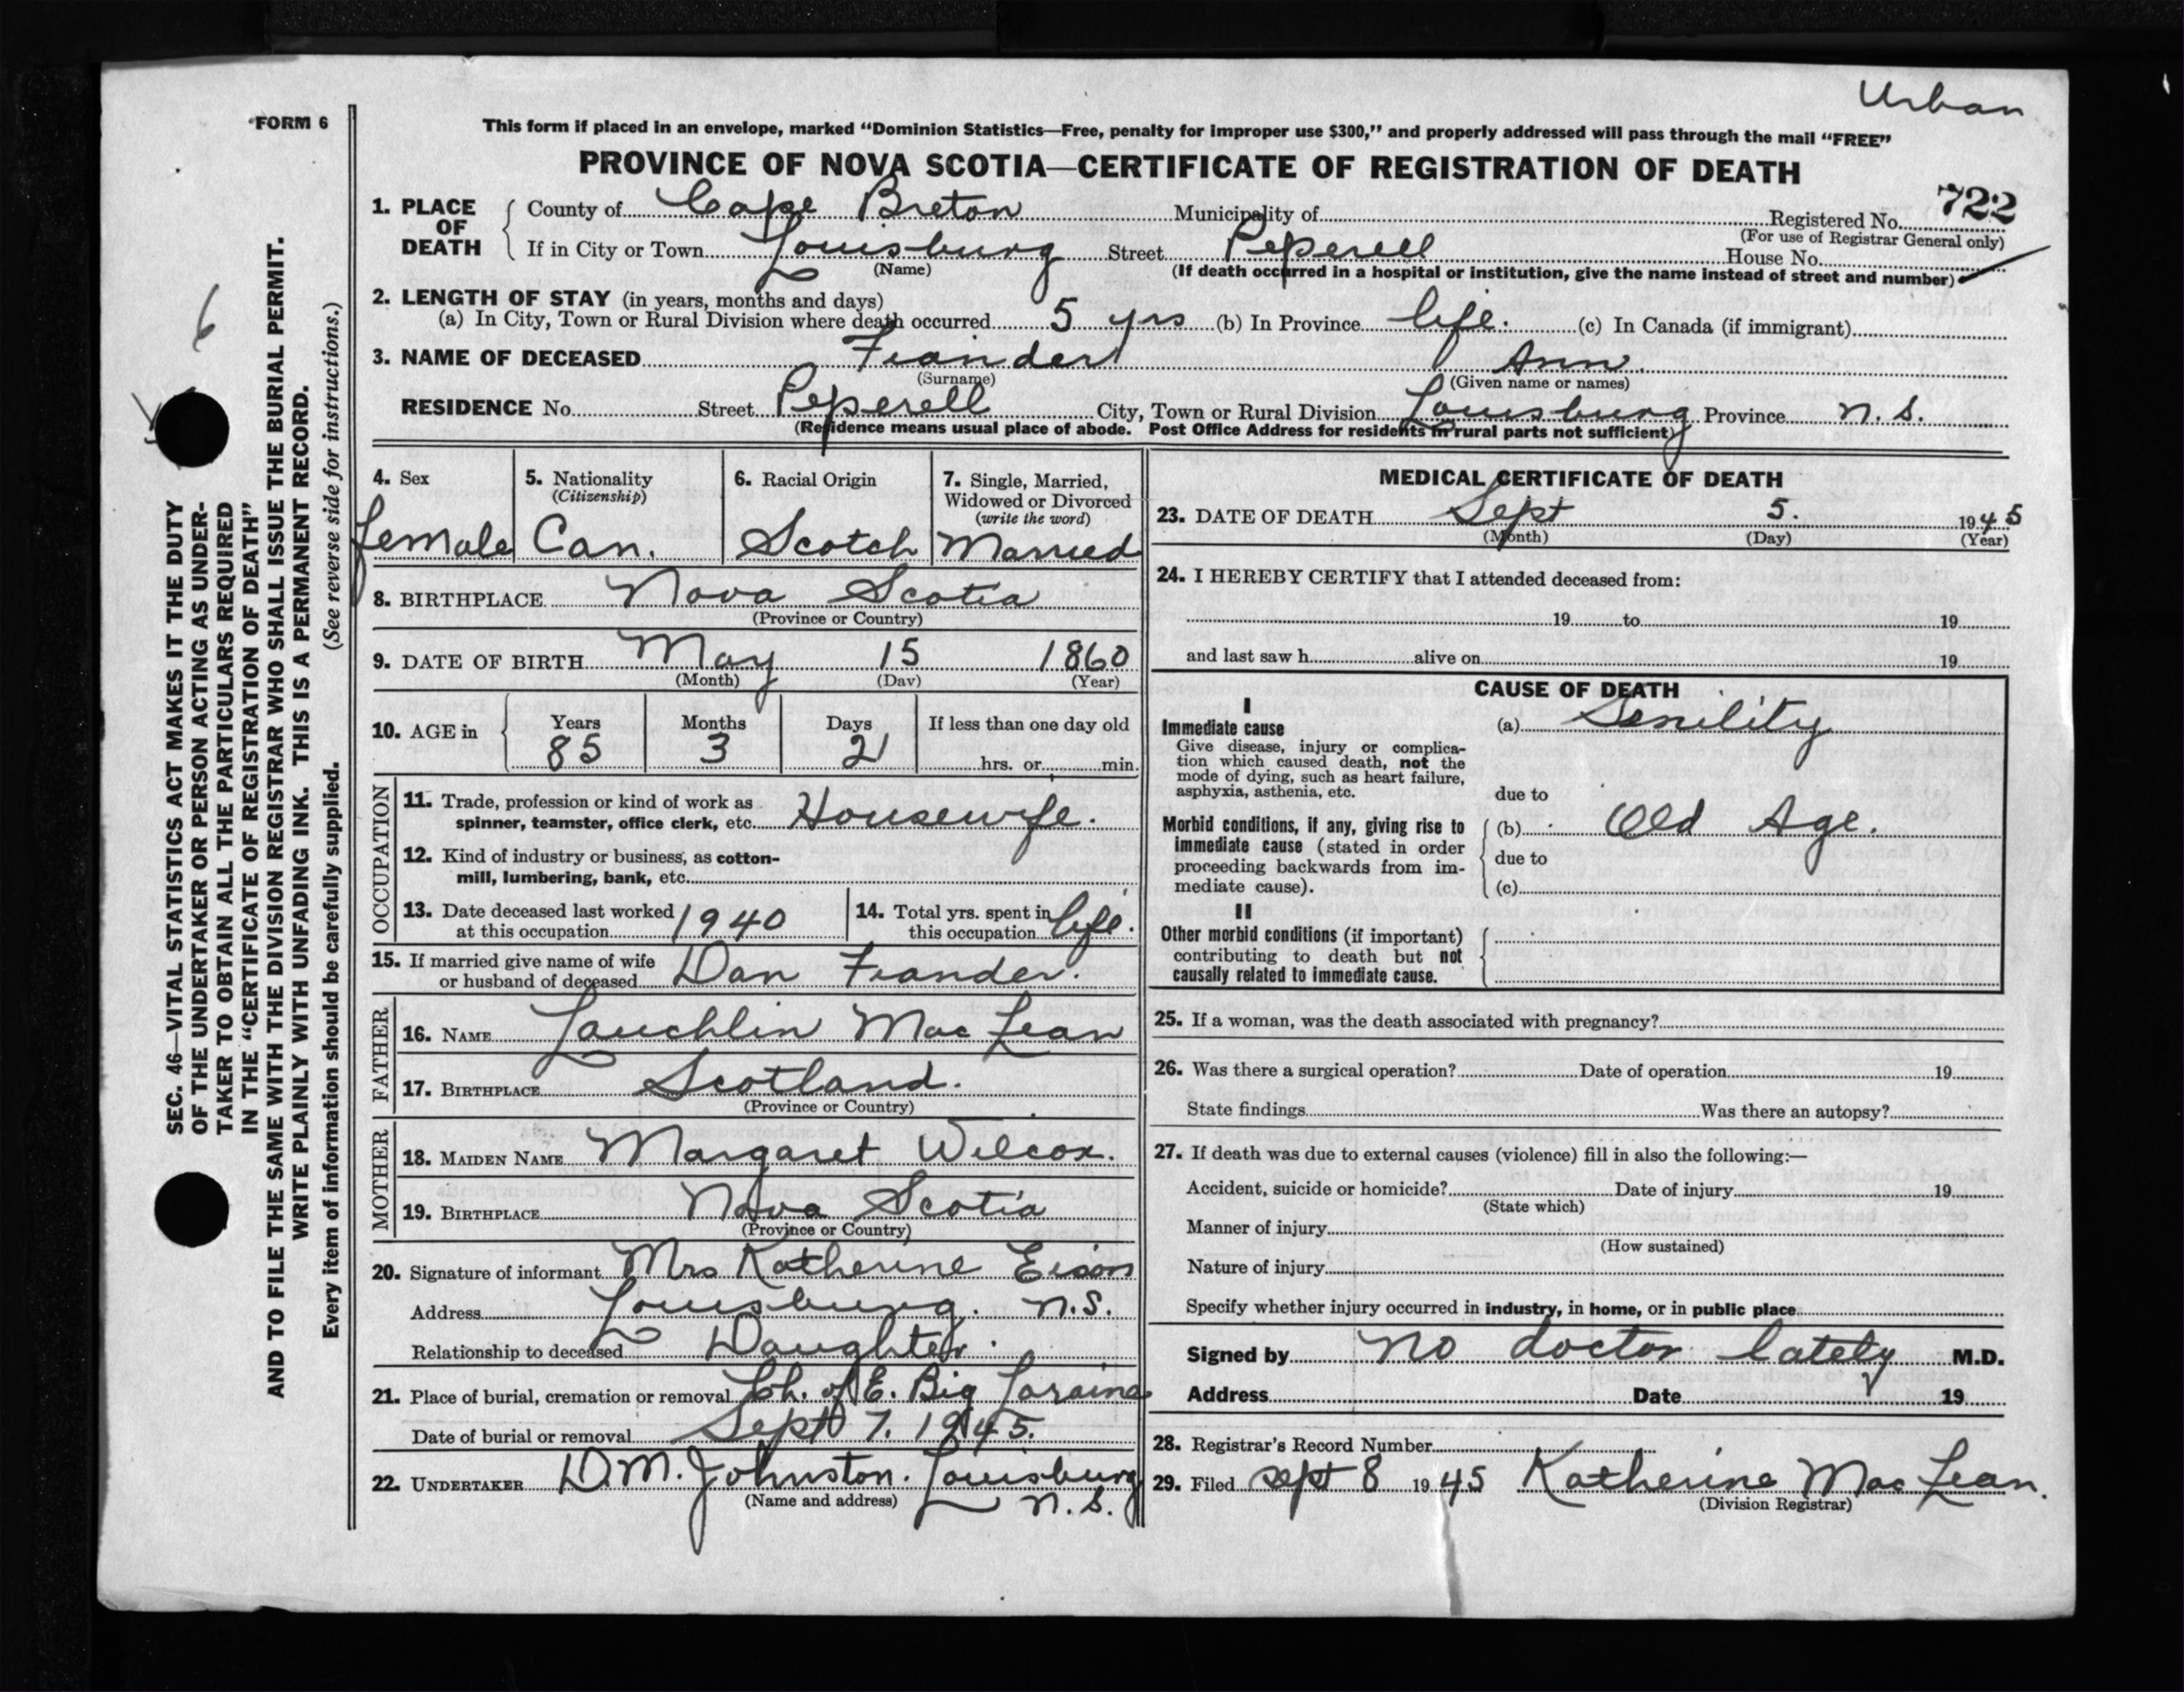 Urban
FORM 6
This form if placed in an envelope, marked “Dominion Statistics—Free, penalty for improper use $300,” and properly addressed will pass through the mail “FREE”
PROVINCE OF NOVA SCOTIA—CERTIFICATE OF REGISTRATION OF DEATH
722
1. PLACE OF DEATH County of Cape Breton Municipality of Registered No.
(For use of Registrar General only)
If in City or Town Louisburg Street Peperell House No.
(Name) (If death occurred in a hospital or institution, give the name instead of street and number)
2. LENGTH OF STAY (in years, months and days)
(a) In City, Town or Rural Division where death occurred 5 yrs (b) In Province life. (c) In Canada (if immigrant)
3. NAME OF DECEASED Fiander Ann
(Surname) (Given name or names)
RESIDENCE No. Street Peperell City, Town or Rural Division Louisburg Province N. S.
(Residence means usual place of abode. Post Office Address for residents in rural parts not sufficient)
4. Sex 5. Nationality (Citizenship) 6. Racial Origin 7. Single, Married, Widowed or Divorced (write the word)
female Can. Scotch Married
8. BIRTHPLACE Nova Scotia
(Province or Country)
9. DATE OF BIRTH May 15 1860
(Month) (Day) (Year)
10. AGE in Years Months Days If less than one day old
85 3 21 hrs. or min.
OCCUPATION
11. Trade, profession or kind of work as
spinner, teamster, office clerk, etc. Housewife.
12. Kind of industry or business, as cotton-
mill, lumbering, bank, etc.
13. Date deceased last worked at this occupation 1940 14. Total yrs. spent in this occupation life.
15. If married give name of wife
or husband of deceased Dan Fiander.
FATHER
16. NAME Lauchlin Mac Lean
17. BIRTHPLACE Scotland.
(Province or Country)
MOTHER
18. MAIDEN NAME Margaret Wilcox.
19. BIRTHPLACE Nova Scotia
(Province or Country)
20. Signature of informant Mrs Katherine
Address Louisburg. N.S.
Relationship to deceased Daughter.
21. Place of burial, cremation or removal Ch. of E. Big Loraine
Date of burial or removal Sept 7. 1945.
22. UNDERTAKER D.M. Johnston. Louisburg
(Name and address) N. S.
MEDICAL CERTIFICATE OF DEATH
23. DATE OF DEATH Sept 5. 1945
(Month) (Day) (Year)
24. I HEREBY CERTIFY that I attended deceased from:
19 to 19
and last saw h alive on 19
CAUSE OF DEATH
I
Immediate cause (a) Senility
Give disease, injury or complica-
tion which caused death, not the
mode of dying, such as heart failure,
asphyxia, asthenia, etc. due to
Morbid conditions, if any, giving rise to (b) Old Age.
immediate cause (stated in order due to
proceeding backwards from im-
mediate cause). (c)
II
Other morbid conditions (if important)
contributing to death but not
causally related to immediate cause.
25. If a woman, was the death associated with pregnancy?
26. Was there a surgical operation? Date of operation 19
State findings Was there an autopsy?
27. If death was due to external causes (violence) fill in also the following:—
Accident, suicide or homicide? Date of injury 19
(State which)
Manner of injury
(How sustained)
Nature of injury
Specify whether injury occurred in industry, in home, or in public place
Signed by no doctor lately M.D.
Address Date 19
28. Registrar's Record Number
29. Filed Sept 8 1945 Katherine Mac Lean.
(Division Registrar)
6
SEC. 46—VITAL STATISTICS ACT MAKES IT THE DUTY
OF THE UNDERTAKER OR PERSON ACTING AS UNDER-
TAKER TO OBTAIN ALL THE PARTICULARS REQUIRED
IN THE “CERTIFICATE OF REGISTRATION OF DEATH”
AND TO FILE THE SAME WITH THE DIVISION REGISTRAR WHO SHALL ISSUE THE BURIAL PERMIT.
WRITE PLAINLY WITH UNFADING INK. THIS IS A PERMANENT RECORD.
Every item of information should be carefully supplied. (See reverse side for instructions.)